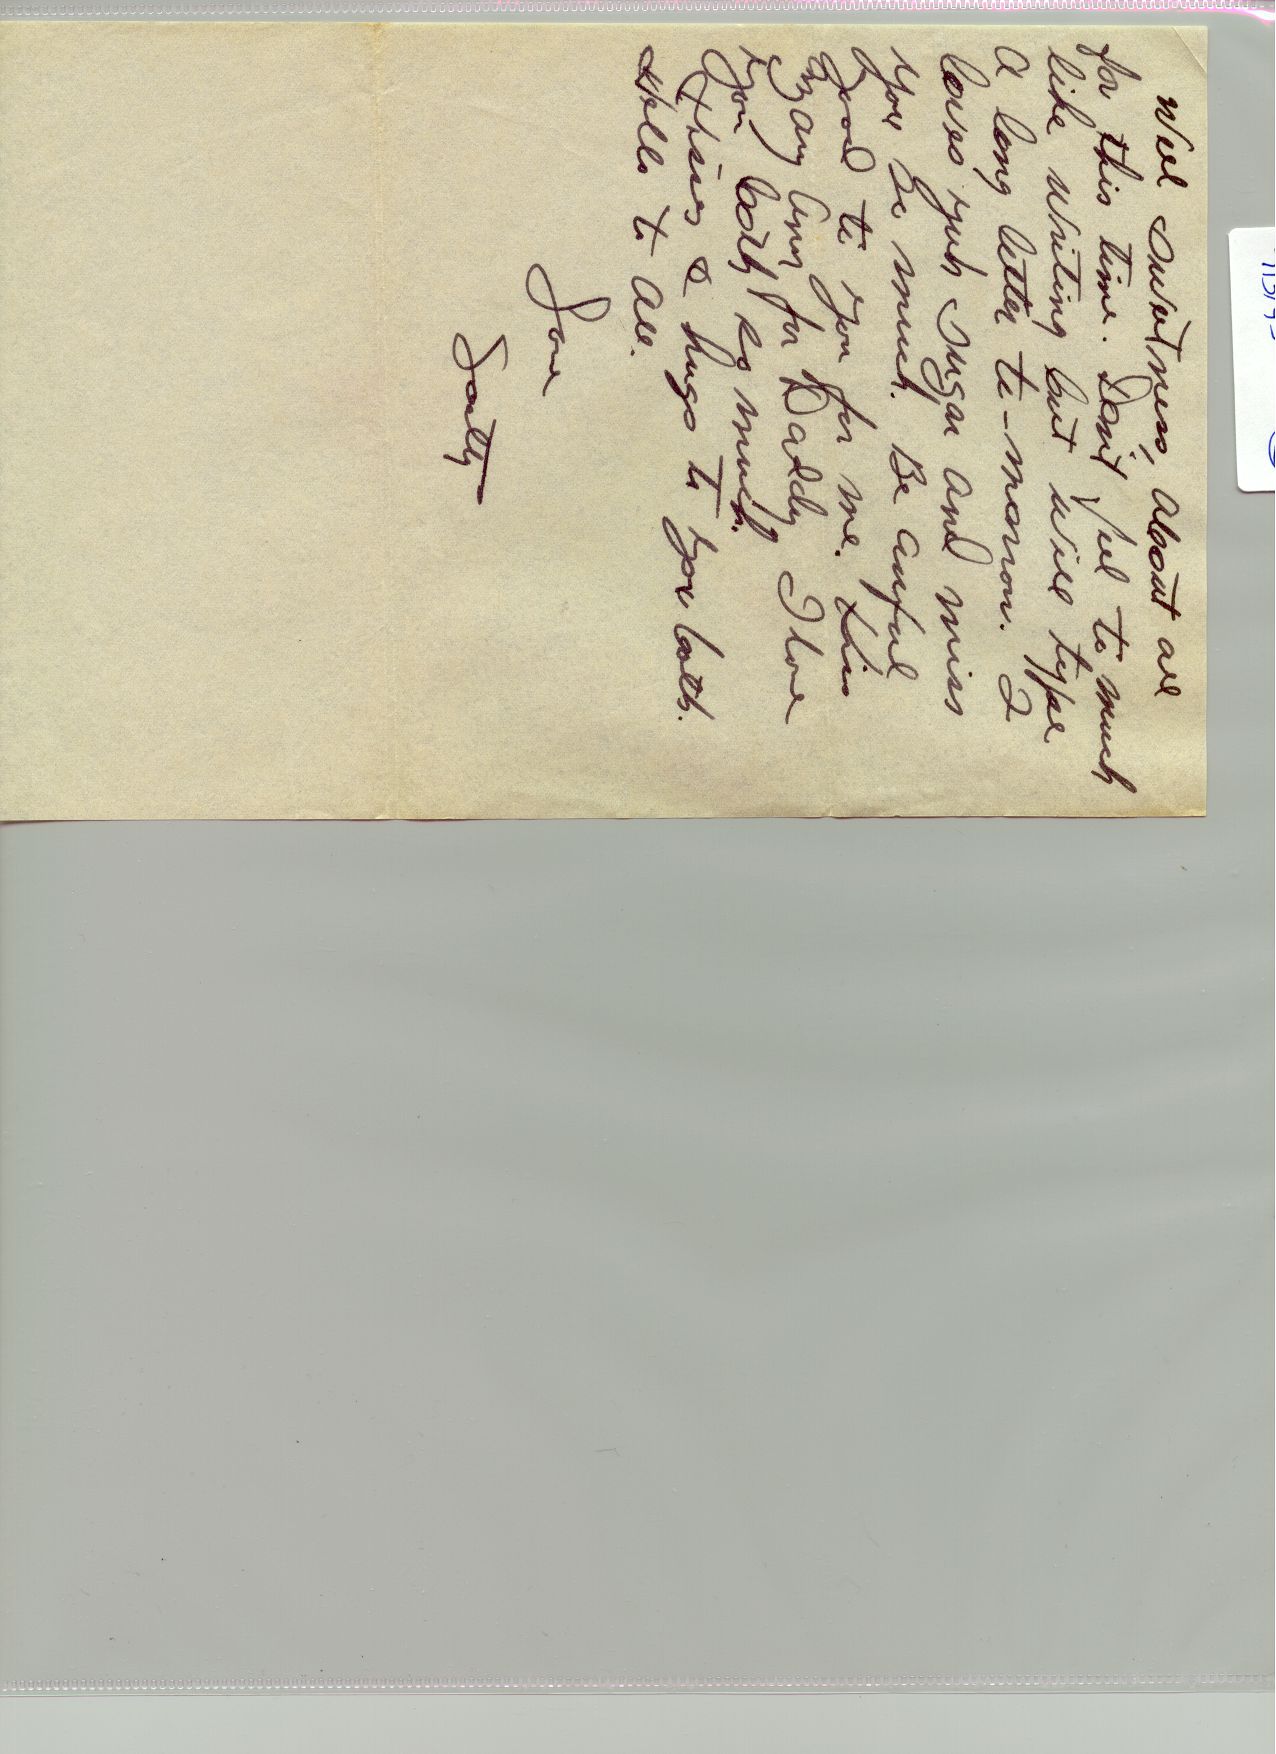 Well sweetness, about all
for this time. Don't feel to much
like writing but will type
a long letter to-morrow. I
loves yuh sugar and miss
you so much. Be awful
good to you for me. Kiss
Mary Ann for Daddy I love
you both so much.
Kisses & hugs to you both.
Hello to all.
Love